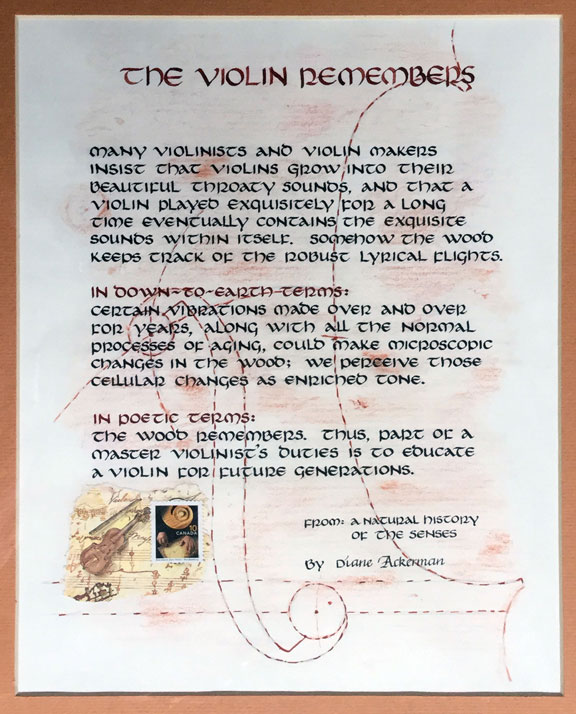 THE VIOLIN REMEMBERS
MANY VIOLINISTS AND VIOLIN MAKERS
INSIST THAT VIOLINS GROW INTO THEIR
BEAUTIFUL THROATY SOUNDS, AND THAT A
VIOLIN PLAYED EXQUISITELY FOR A LONG
TIME EVENTUALLY CONTAINS THE EXQUISITE
SOUNDS WITHIN ITSELF. SOMEHOW THE WOOD
KEEPS TRACK OF THE ROBUST LYRICAL FLIGHTS.
IN DOWN-TO-EARTH TERMS:
CERTAIN VIBRATIONS MADE OVER AND OVER
FOR YEARS, ALONG WITH ALL THE NORMAL
PROCESSES OF AGING, COULD MAKE MICROSCOPIC
CHANGES IN THE WOOD; WE PERCEIVE THOSE
CELLULAR CHANGES AS ENRICHED TONE.
IN POETIC TERMS:
THE WOOD REMEMBERS. THUS, PART OF A
MASTER VIOLINIST'S DUTIES IS TO EDUCATE
A VIOLIN FOR FUTURE GENERATIONS.
10
CANADA
FROM: A NATURAL HISTORY
OF THE SENSES
BY Diane Ackerman